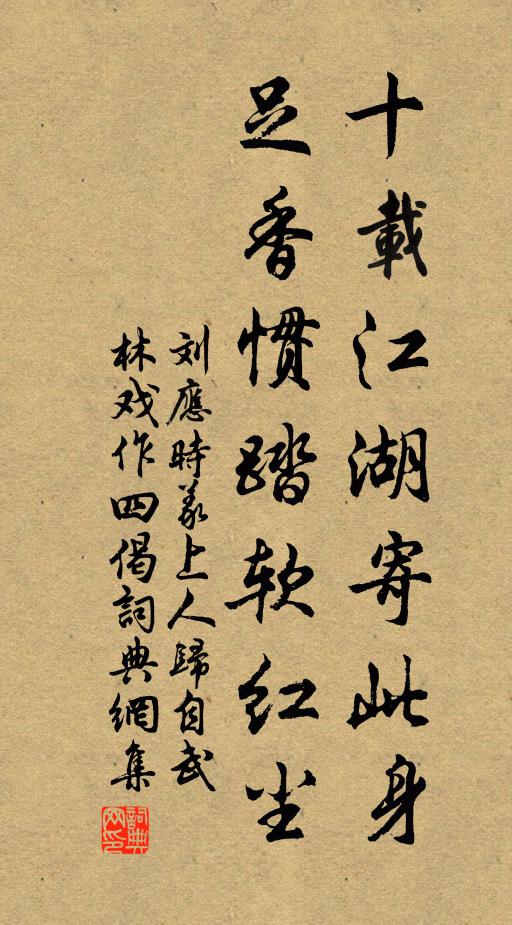 十載江湖寄此身
足香慣踏软红尘
刘應時義上人歸自武
林戏作四偈詞典網集
詞典網印